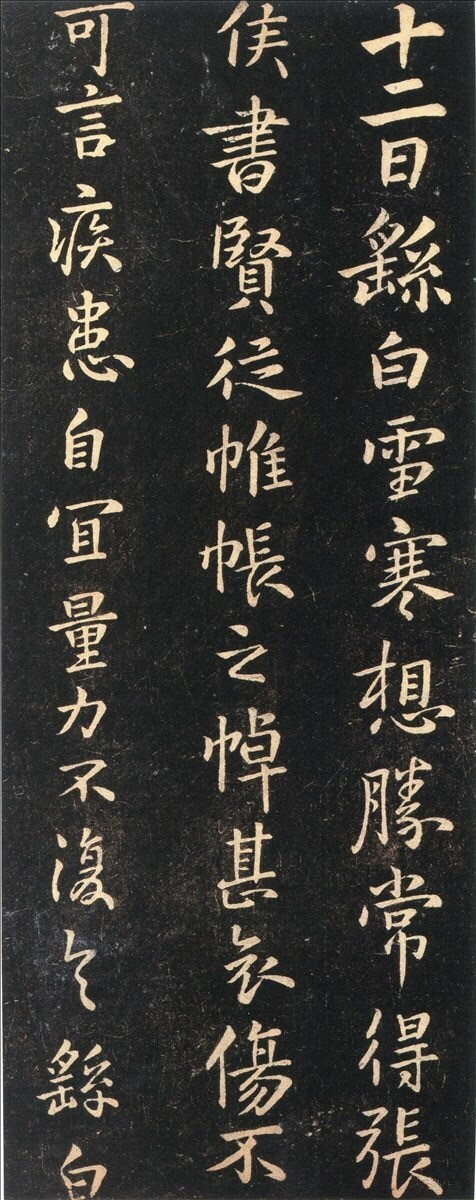 十二日繇白雪寒想勝常得張
侯書賢從帷帳之悼甚哀傷不
可言疾患自宜量力不復繇白